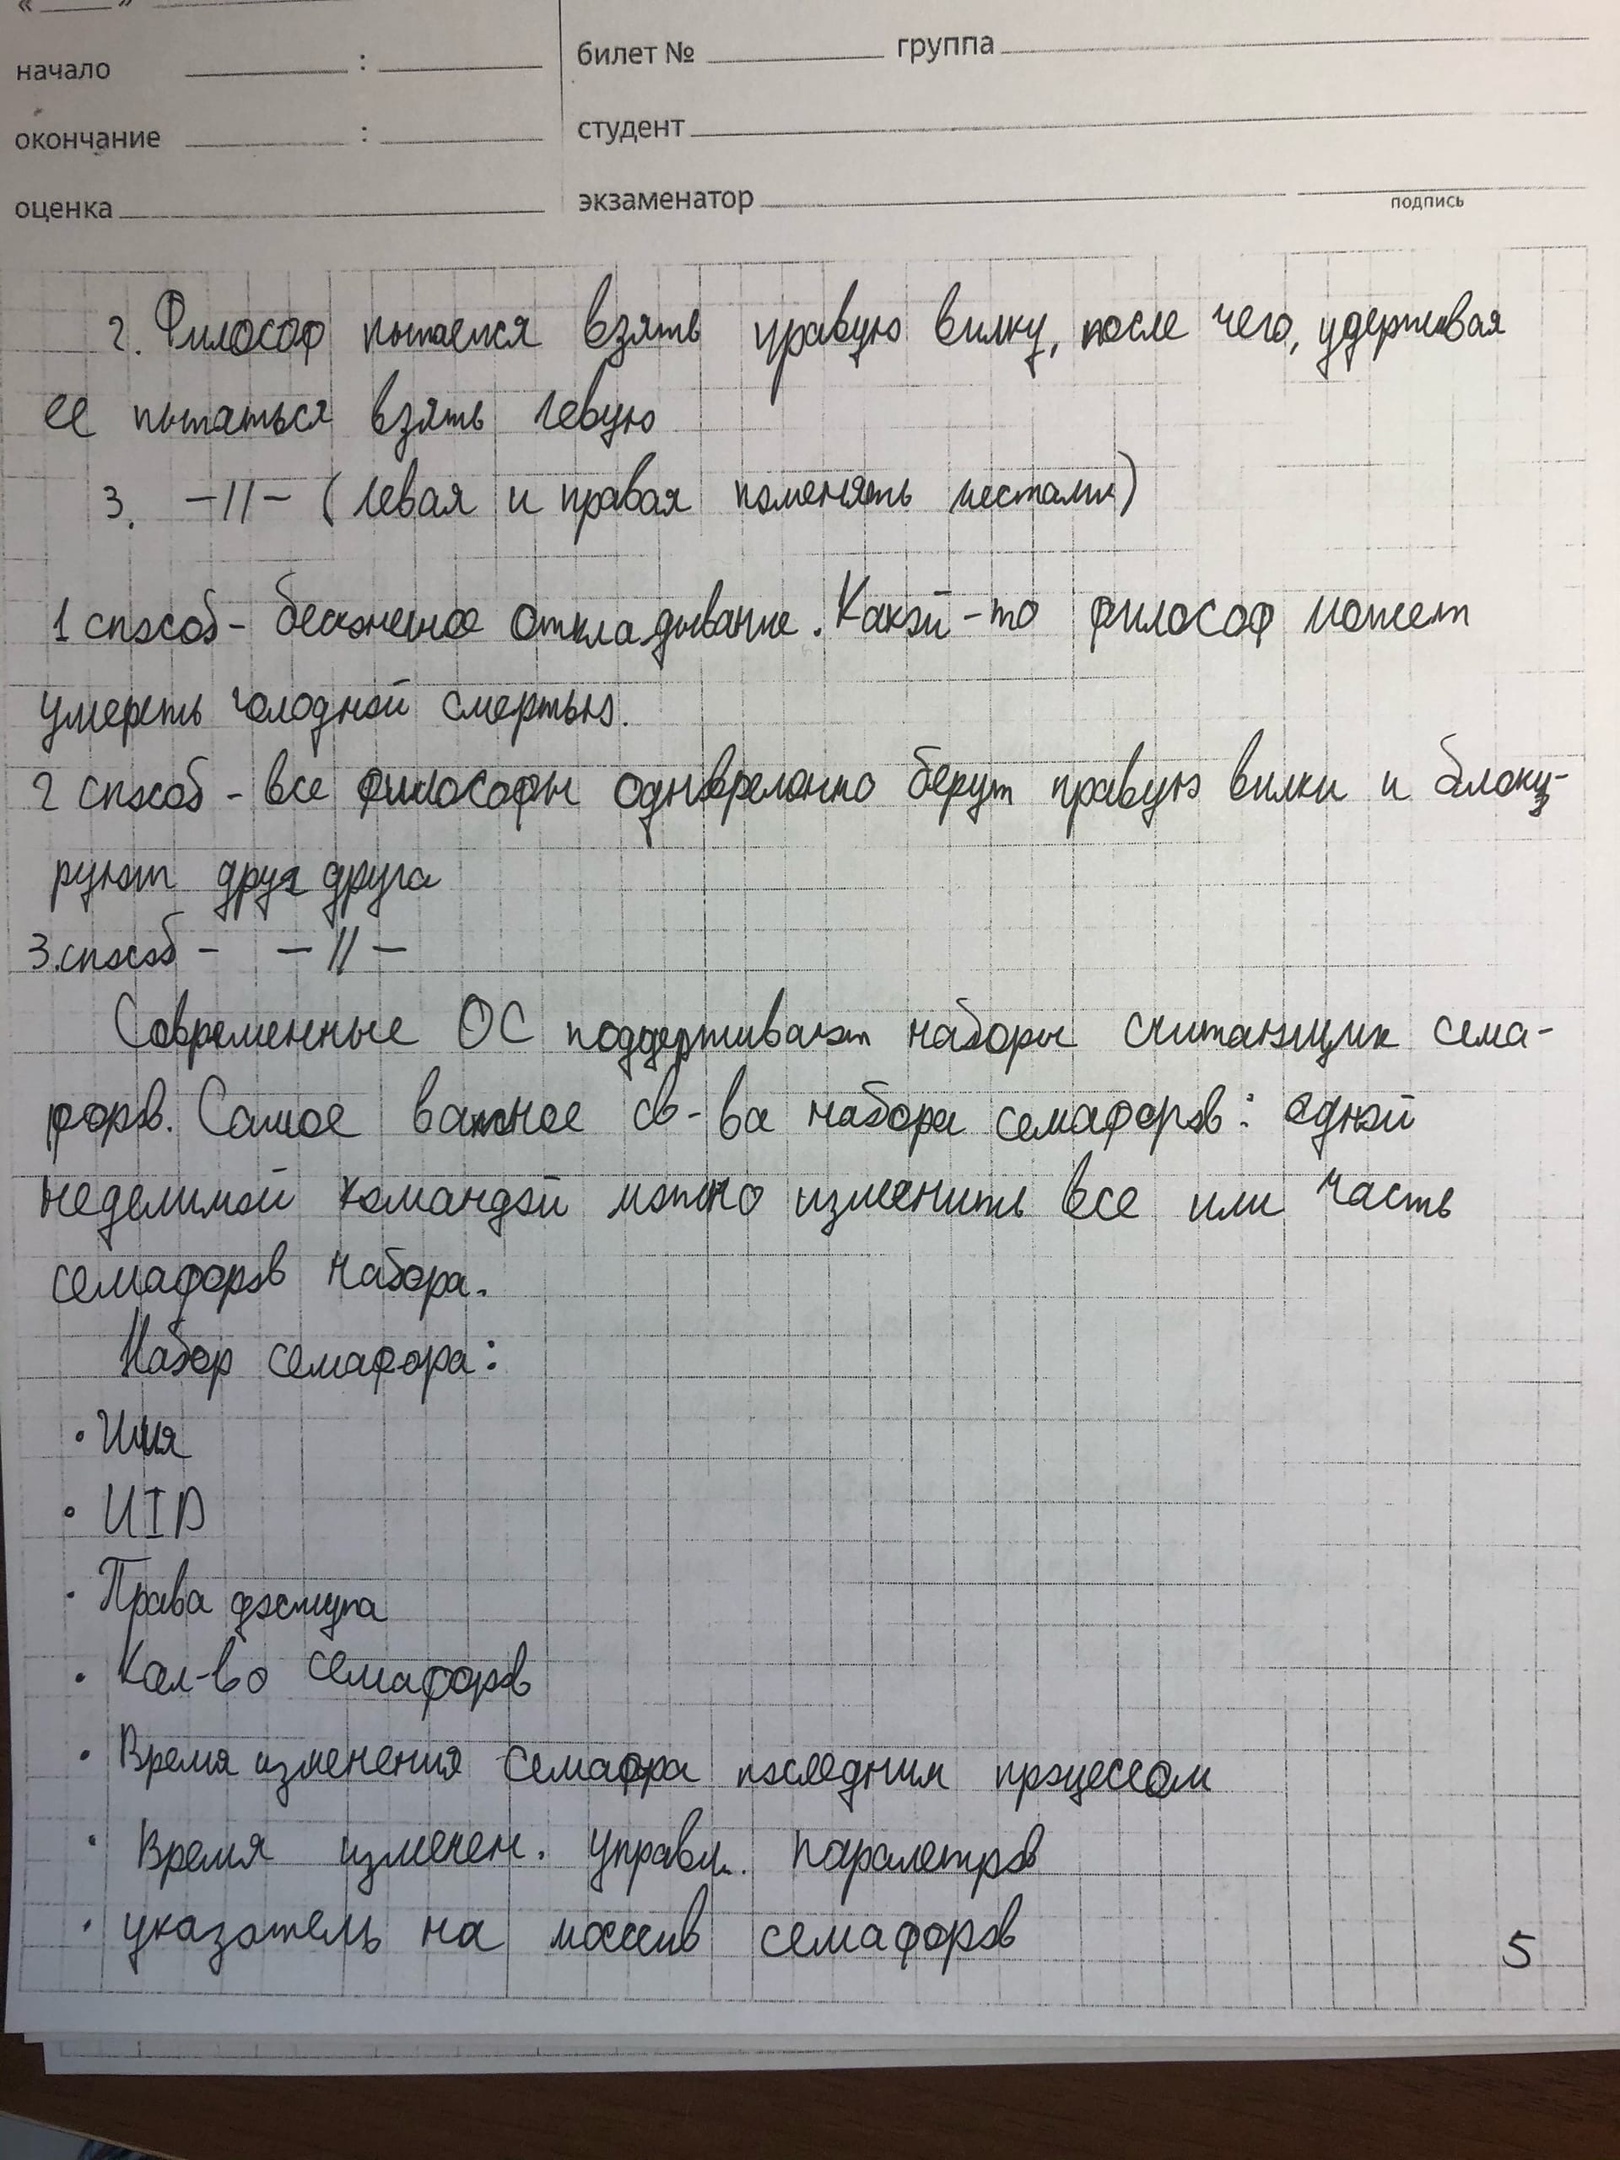 « ____ »
начало ____ : ____ билет № ____ группа ____
окончание ____ : ____ студент ____
оценка ____ экзаменатор ____
подпись
2. Философ пытается взять правую вилку, после чего, удерживая
ее пытаться взять левую
3. –//– (левая и правая поменять местами)
1 способ – бесконечное откладывание. Какой-то философ может
умереть голодной смертью.
2 способ – все философы одновременно берут правую вилки и блоки-
руют друг друга
3. способ – –//–
Современные ОС поддерживают наборы считающих сема-
форов. Самое важное св-ва набора семафоров: одной
неделимой командой можно изменить все или часть
семафоров набора.
Набор семафора:
• Имя
• UID
• Права доступа
• Кол-во семафоров
• Время изменения семафора последним процессом
• Время изменен. управл. параметров
• указатель на массив семафоров
5